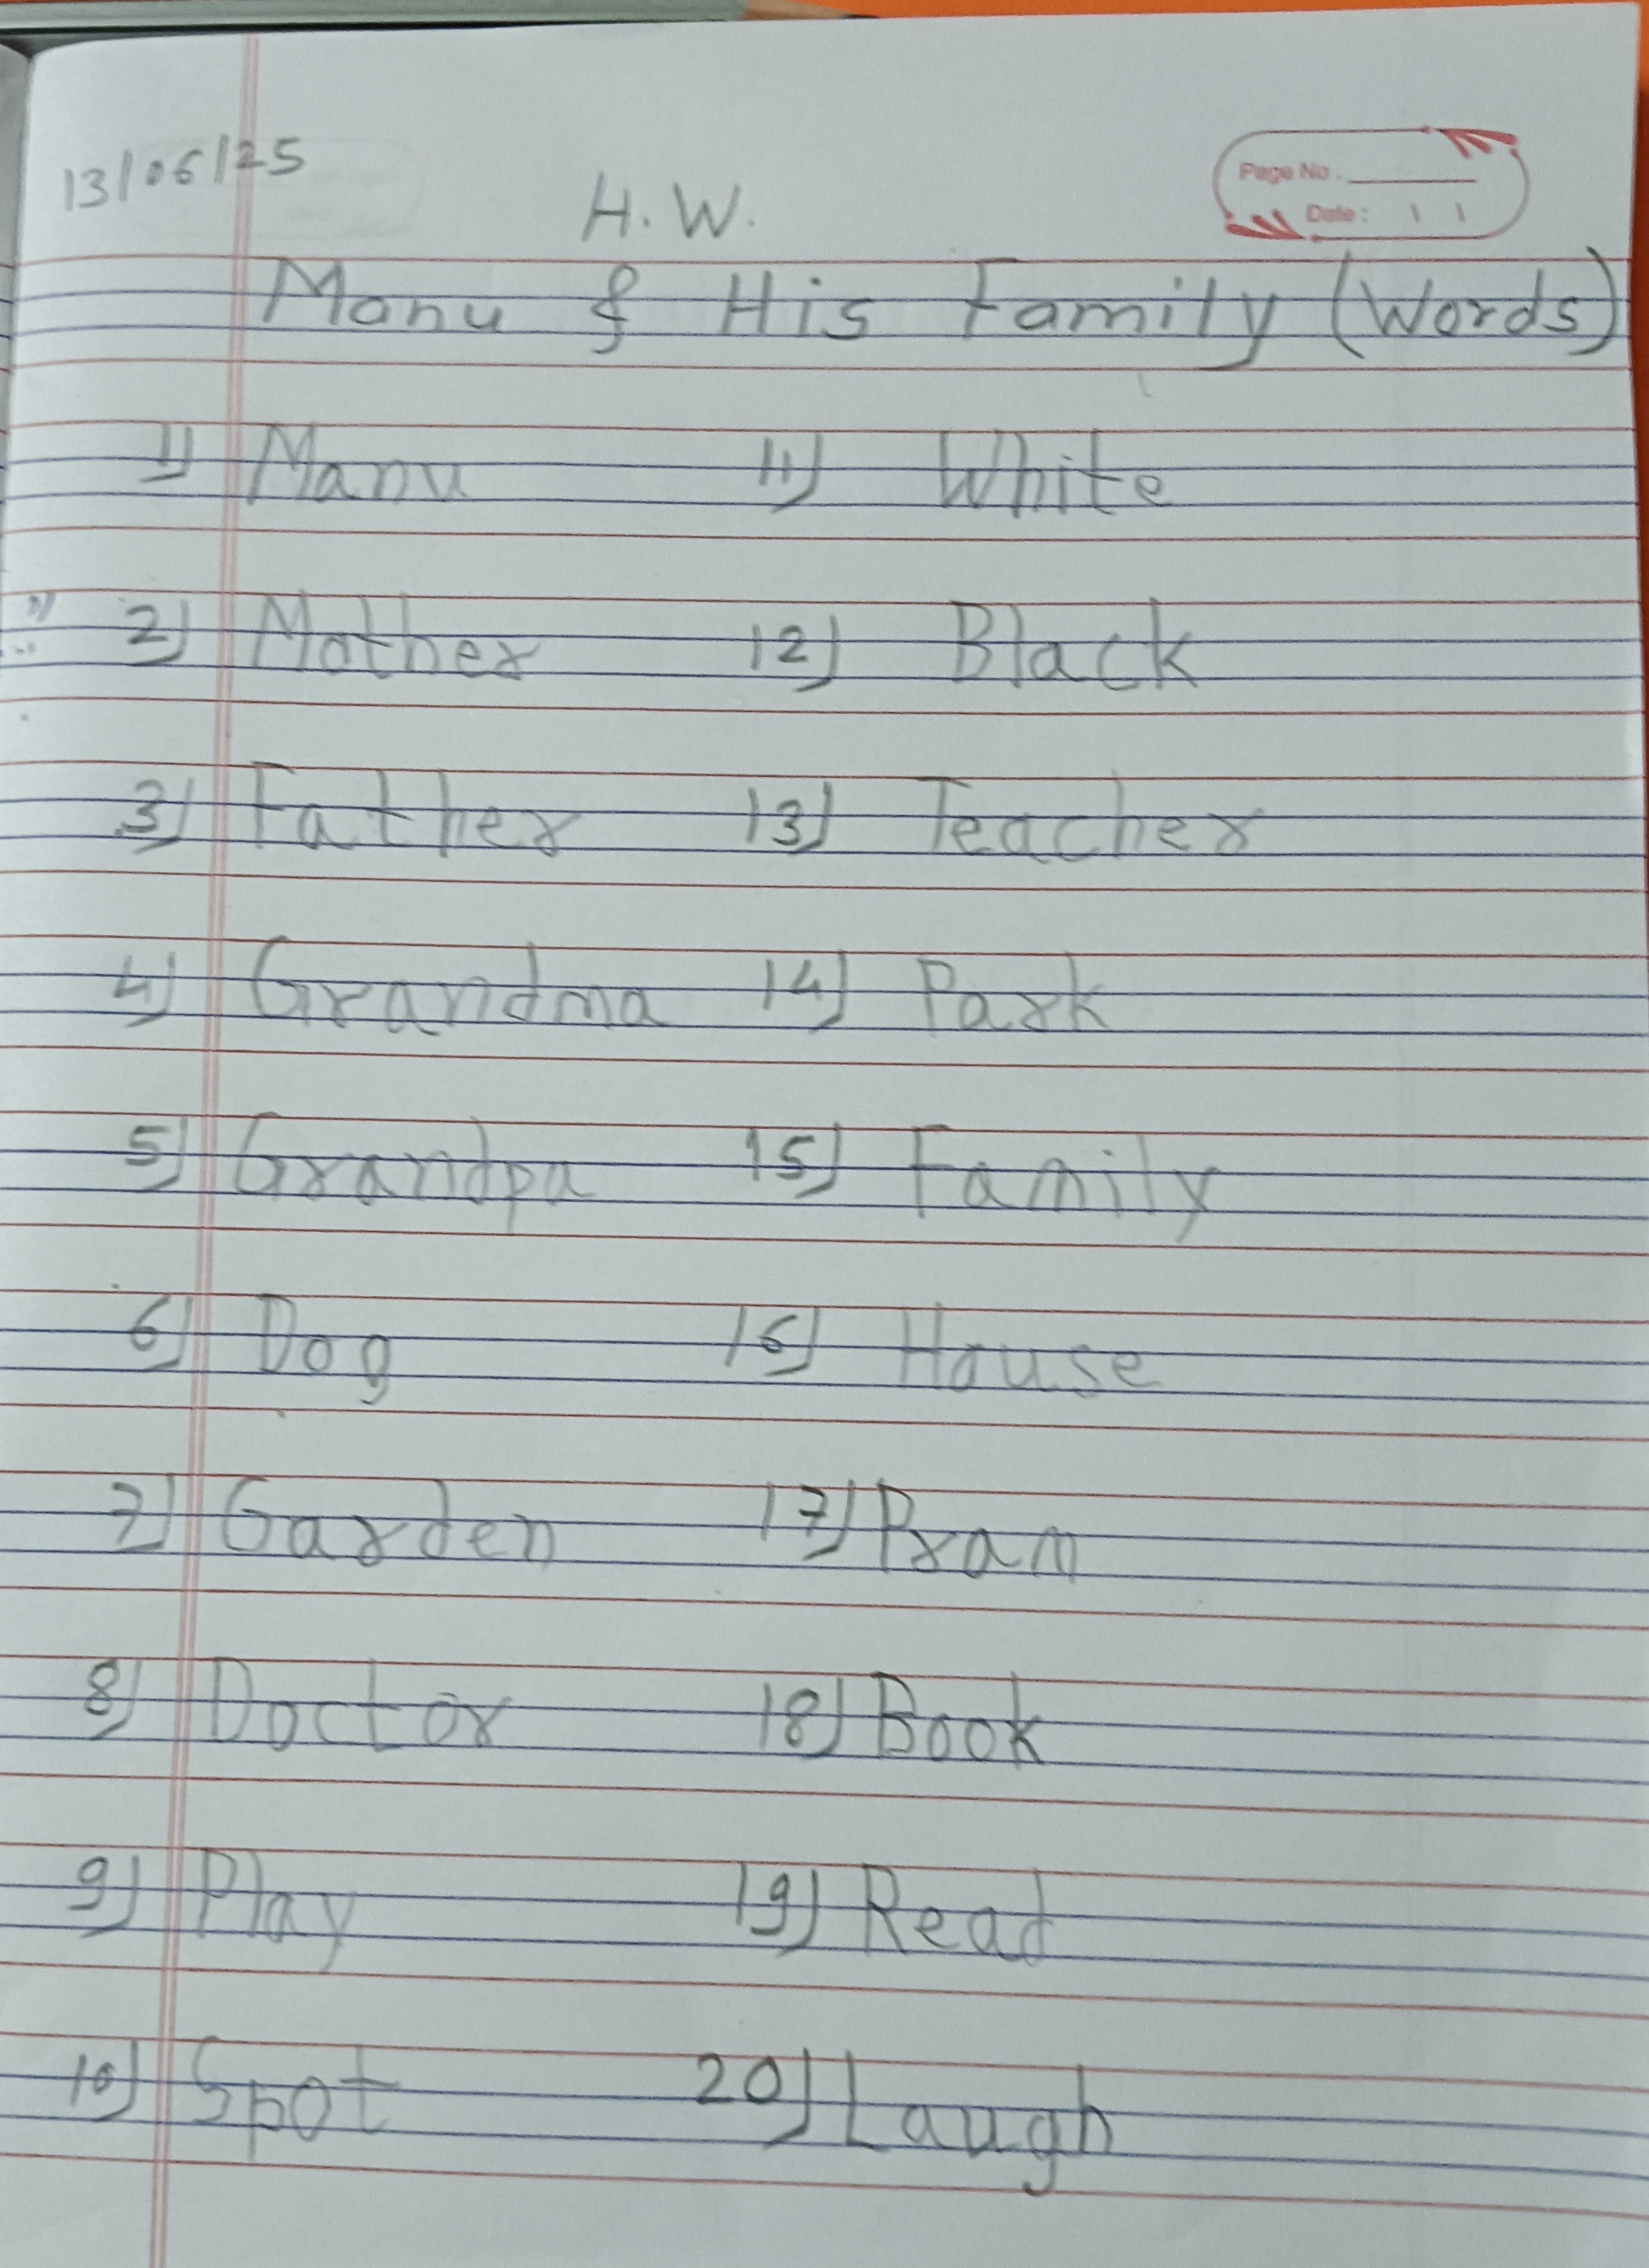 13/06/25
Page No.
H.W.
Date:
Manu & His Family (Words)
1) Manu 11) White
2) Mother 12) Black
3) Father 13) Teacher
4) Grandma 14) Park
5) Grandpa 15) Family
6) Dog 16) House
7) Garden 17) Pram
8) Doctor 18) Book
9) Play 19) Read
10) Spot 20) Laugh